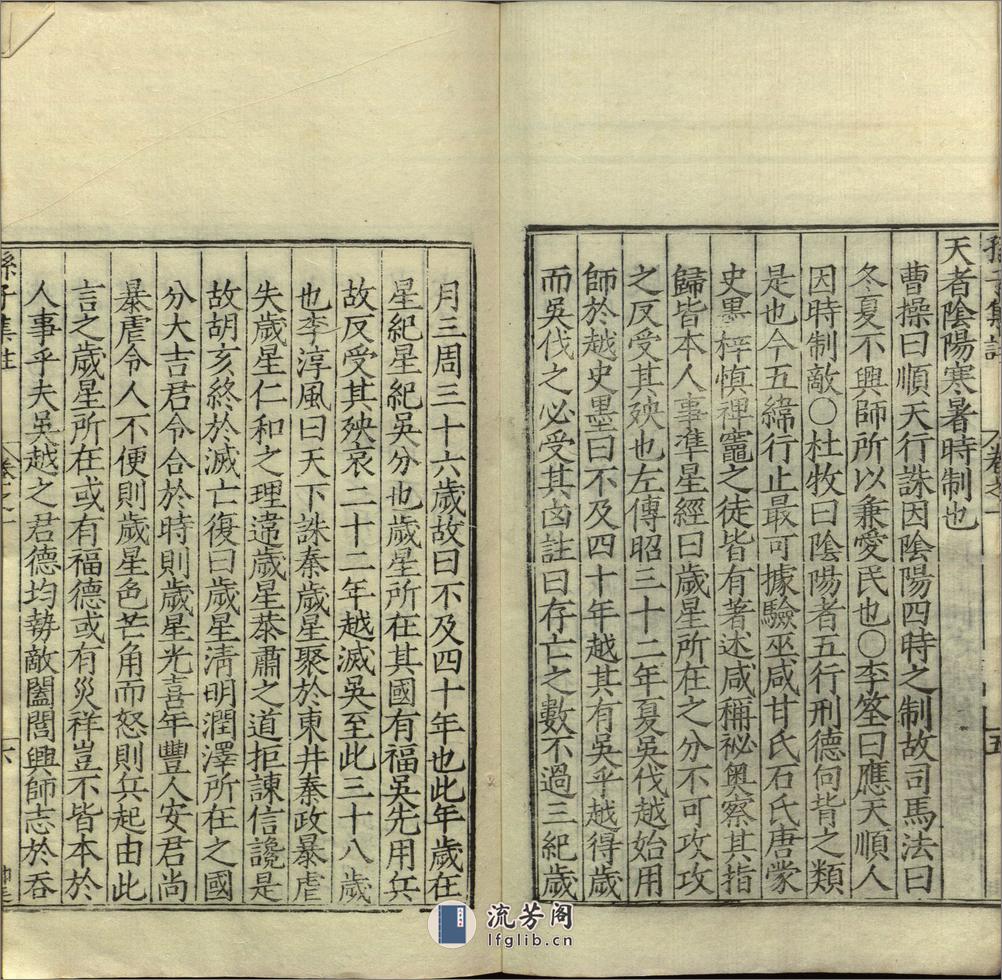 孫子集註 卷之一 五
天者陰陽寒暑時制也
曹操曰順天行誅因陰陽四時之制故司馬法曰
冬夏不興師所以兼愛民也○李筌曰應天順人
因時制敵○杜牧曰陰陽者五行刑德向背之類
是也今五緯行止最可據驗巫咸甘氏石氏唐蒙
史墨梓慎裨竈之徒皆有著述咸稱祕奧察其指
歸皆本人事準星經曰歲星所在之分不可攻攻
之反受其殃也左傳昭三十二年夏吳伐越始用
師於越史墨曰不及四十年越其有吳乎越得歲
而吳伐之必受其凶註曰存亡之數不過三紀歲
月三周三十六歲故曰不及四十年也此年歲在
星紀星紀吳分也歲星所在其國有福吳先用兵
故反受其殃哀二十二年越滅吳至此三十八歲
也李淳風曰天下誅秦歲星聚於東井秦政暴虐
失歲星仁和之理違歲星恭肅之道拒諫信讒是
故胡亥終於滅亡復曰歲星清明潤澤所在之國
分大吉君令合於時則歲星光喜年豐人安君尚
暴虐令人不便則歲星色芒角而怒則兵起由此
言之歲星所在或有福德或有災祥豈不皆本於
人事乎夫吳越之君德均勢敵闔閭興師志於吞
孫子集註 卷之一 六
流芳阁
lfglib.cn